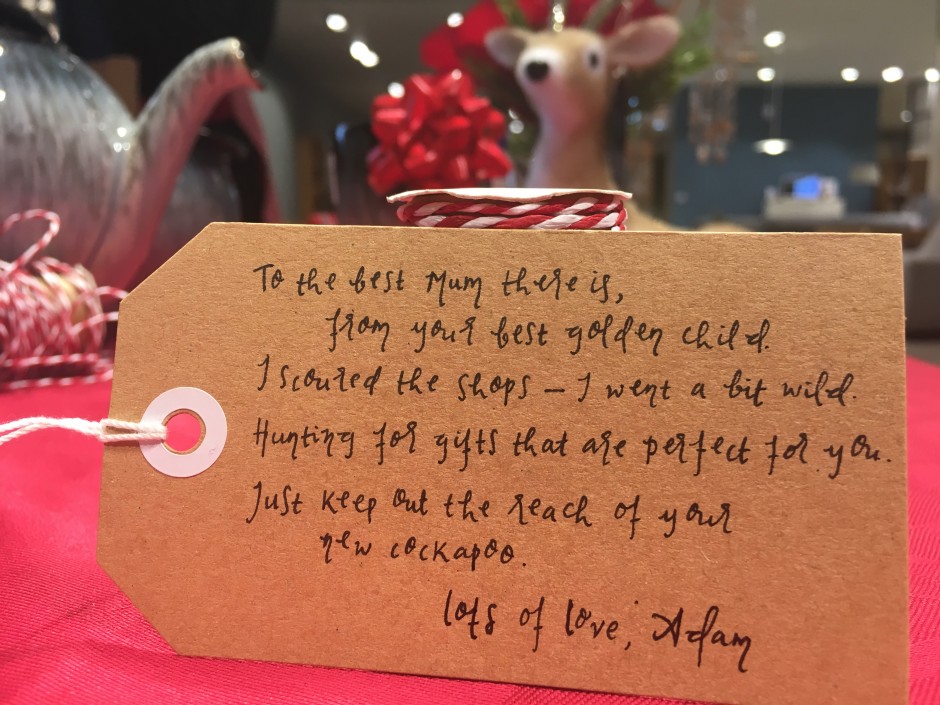 To the best Mum there is,
from your best golden child.
I scoured the shops – I went a bit wild.
Hunting for gifts that are perfect for you.
Just keep out the reach of your
new cockapoo.
lots of love, Adam